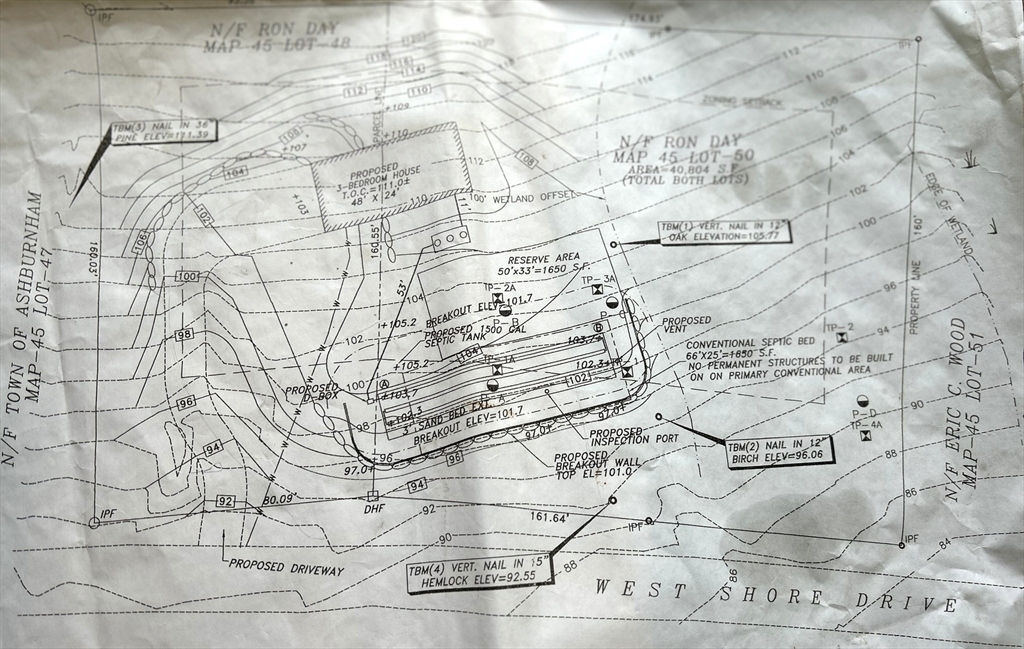 IPF
N/F RON DAY
MAP 45 LOT-48
174.93'
IPF
IPF
118
120
116
114
112
110
+109
PARCEL LINE
ZONING SETBACK
116
114
112
110
108
106
104
102
100
TBM(3) NAIL IN 36"
PINE ELEV=111.39
108
+107
104
+110
112
108
N/F RON DAY
MAP 45 LOT-50
AREA=40,804 S.F.
(TOTAL BOTH LOTS)
PROPOSED
3-BEDROOM HOUSE
T.O.C.=111.0±
48' X 24'
+103
102
106
100' WETLAND OFFSET
EDGE OF WETLAND
N/F TOWN OF ASHBURNHAM
MAP-45 LOT-47
160.03'
160.55'
W
W
W
W
TBM(1) VERT. NAIL IN 12"
OAK ELEVATION=105.77
160'
PROPERTY LINE
RESERVE AREA
50'x33'=1650 S.F.
100
53'
TP-2A
TP-3A
104
BREAKOUT ELEV=101.7
98
96
94
+105.2
PROPOSED 1500 GAL
SEPTIC TANK
P-B
P-C
PROPOSED
VENT
TP-2
98
102
103.7+
B
104
TP-1A
+105.2
102.3+
TP-1
102
CONVENTIONAL SEPTIC BED
66'X25'=1650 S.F.
NO PERMANENT STRUCTURES TO BE BUILT
ON ON PRIMARY CONVENTIONAL AREA
PROPOSED
D-BOX
100
A
+103.7
P-A
96
98
+102.3
3' SAND BED EXT.
BREAKOUT ELEV=101.7
97.0+
97.0+
90
P-D
TP-4A
94
96
97.0+
96
PROPOSED
INSPECTION PORT
PROPOSED
BREAKOUT WALL
TOP EL=101.0
TBM(2) NAIL IN 12"
BIRCH ELEV=96.06
N/F ERIC C. WOOD
MAP-45 LOT-51
92
80.09'
94
DHF
92
88
86
IPF
161.64'
IPF
IPF
84
90
PROPOSED DRIVEWAY
TBM(4) VERT. NAIL IN 15"
HEMLOCK ELEV=92.55
88
86
WEST SHORE DRIVE